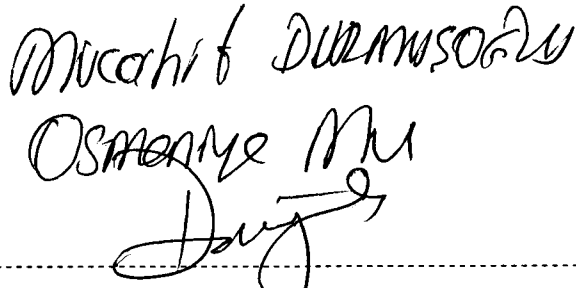 Mücahit DURMUŞOĞLU
Osmaniye Mv